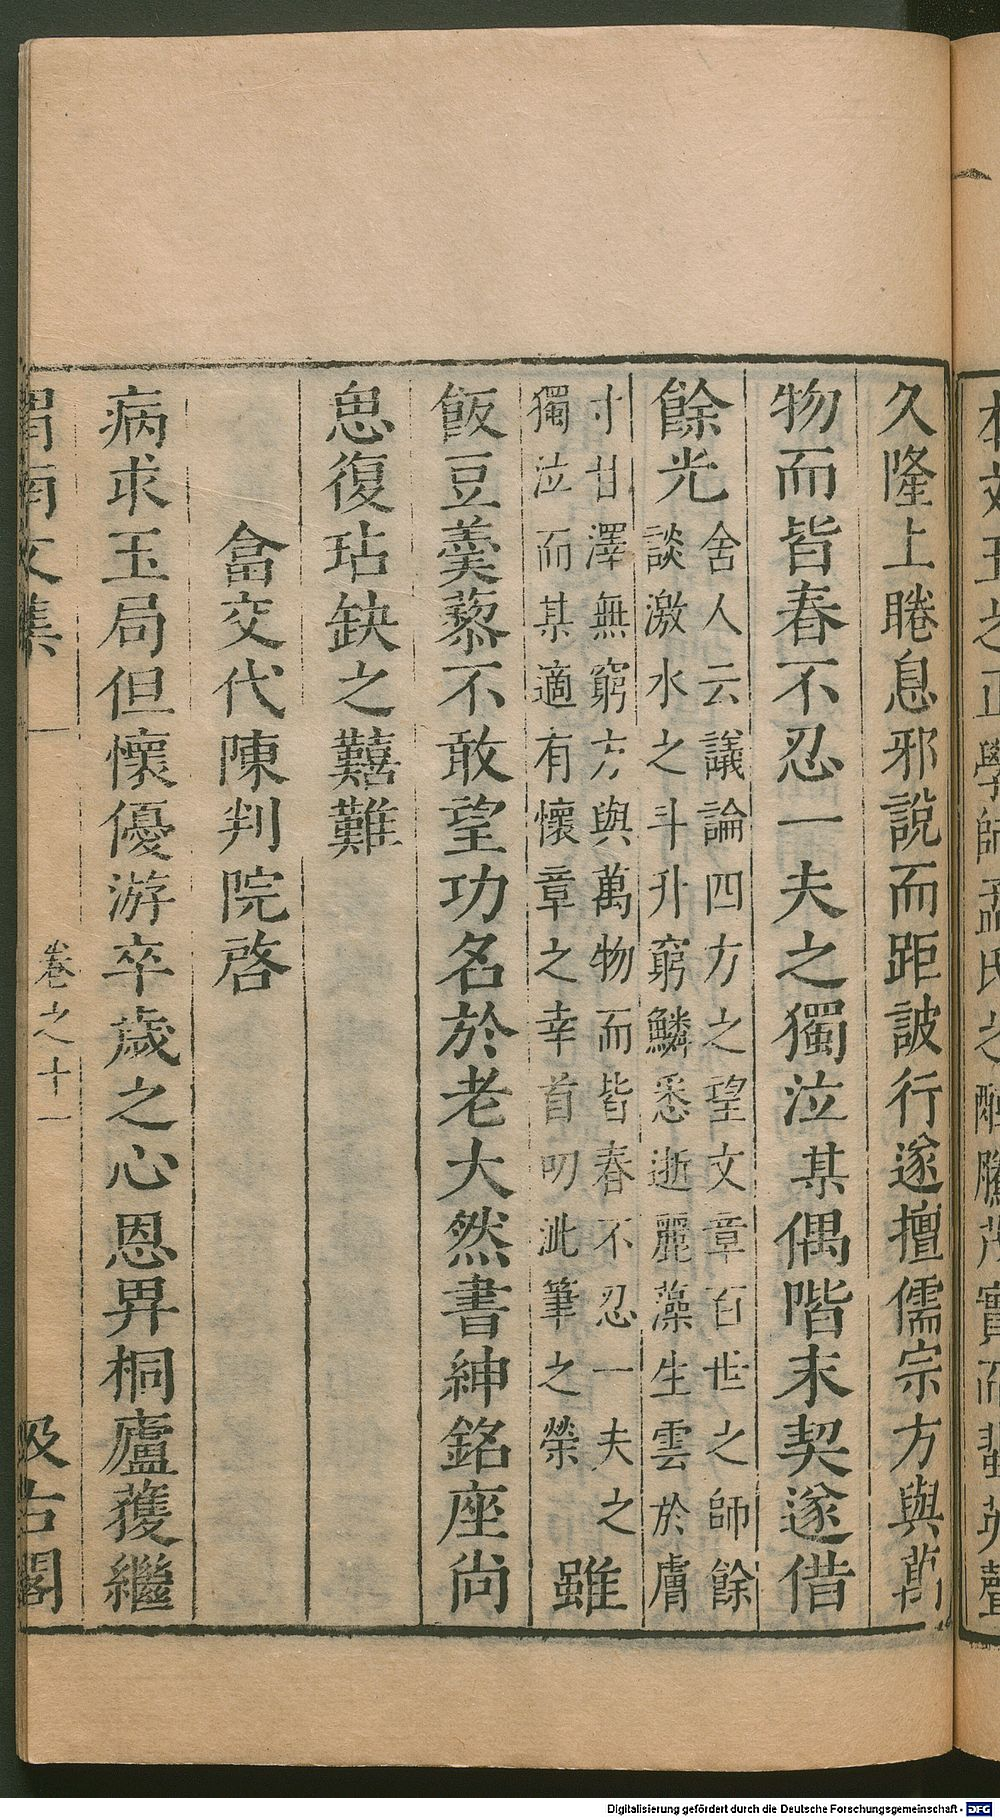 久隆上睠息邪說而距詖行遂擅儒宗方與萬
物而皆春不忍一夫之獨泣某偶階末契遂借
餘光
舍人云議論四方之望文章百世之師餘
談激水之斗升窮鱗悉逝麗藻生雲於膚
寸甘澤無窮方與萬物而皆春不忍一夫之
獨泣而某適有懷章之幸首叨泚筆之榮
雖
飯豆羹藜不敢望功名於老大然書紳銘座尚
思復玷缺之囏難
畣交代陳判院啓
病求玉局但懷優游卒歲之心恩畀桐廬獲繼
渭南文集
卷之十一
汲古閣
Digitalisierung gefördert durch die Deutsche Forschungsgemeinschaft - DFG